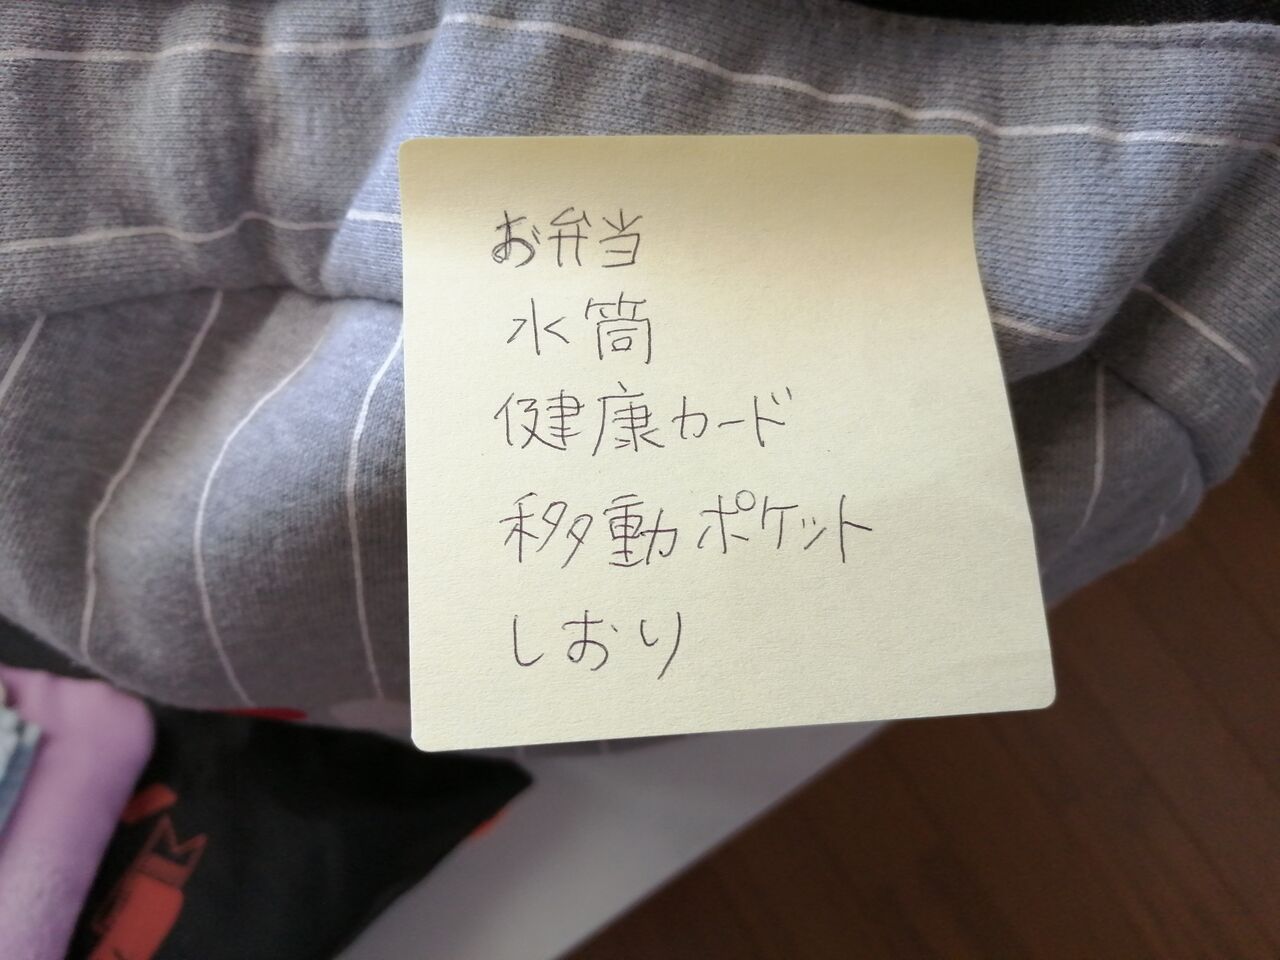 お弁当
水筒
健康カード
移動ポケット
しおり